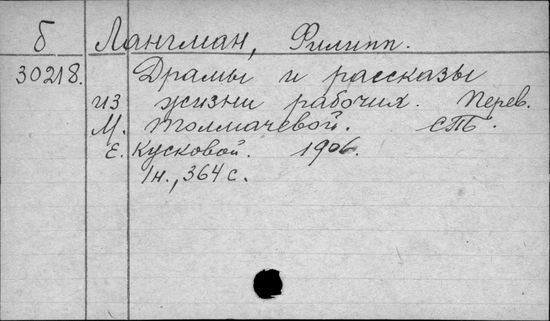 б Лангман, Филипп.
30218. Драмы и рассказы
из жизни рабочих. Перев.
М. Толмачевой. СПБ.
Е. Кусковой. 1906.
1н., 364 с.